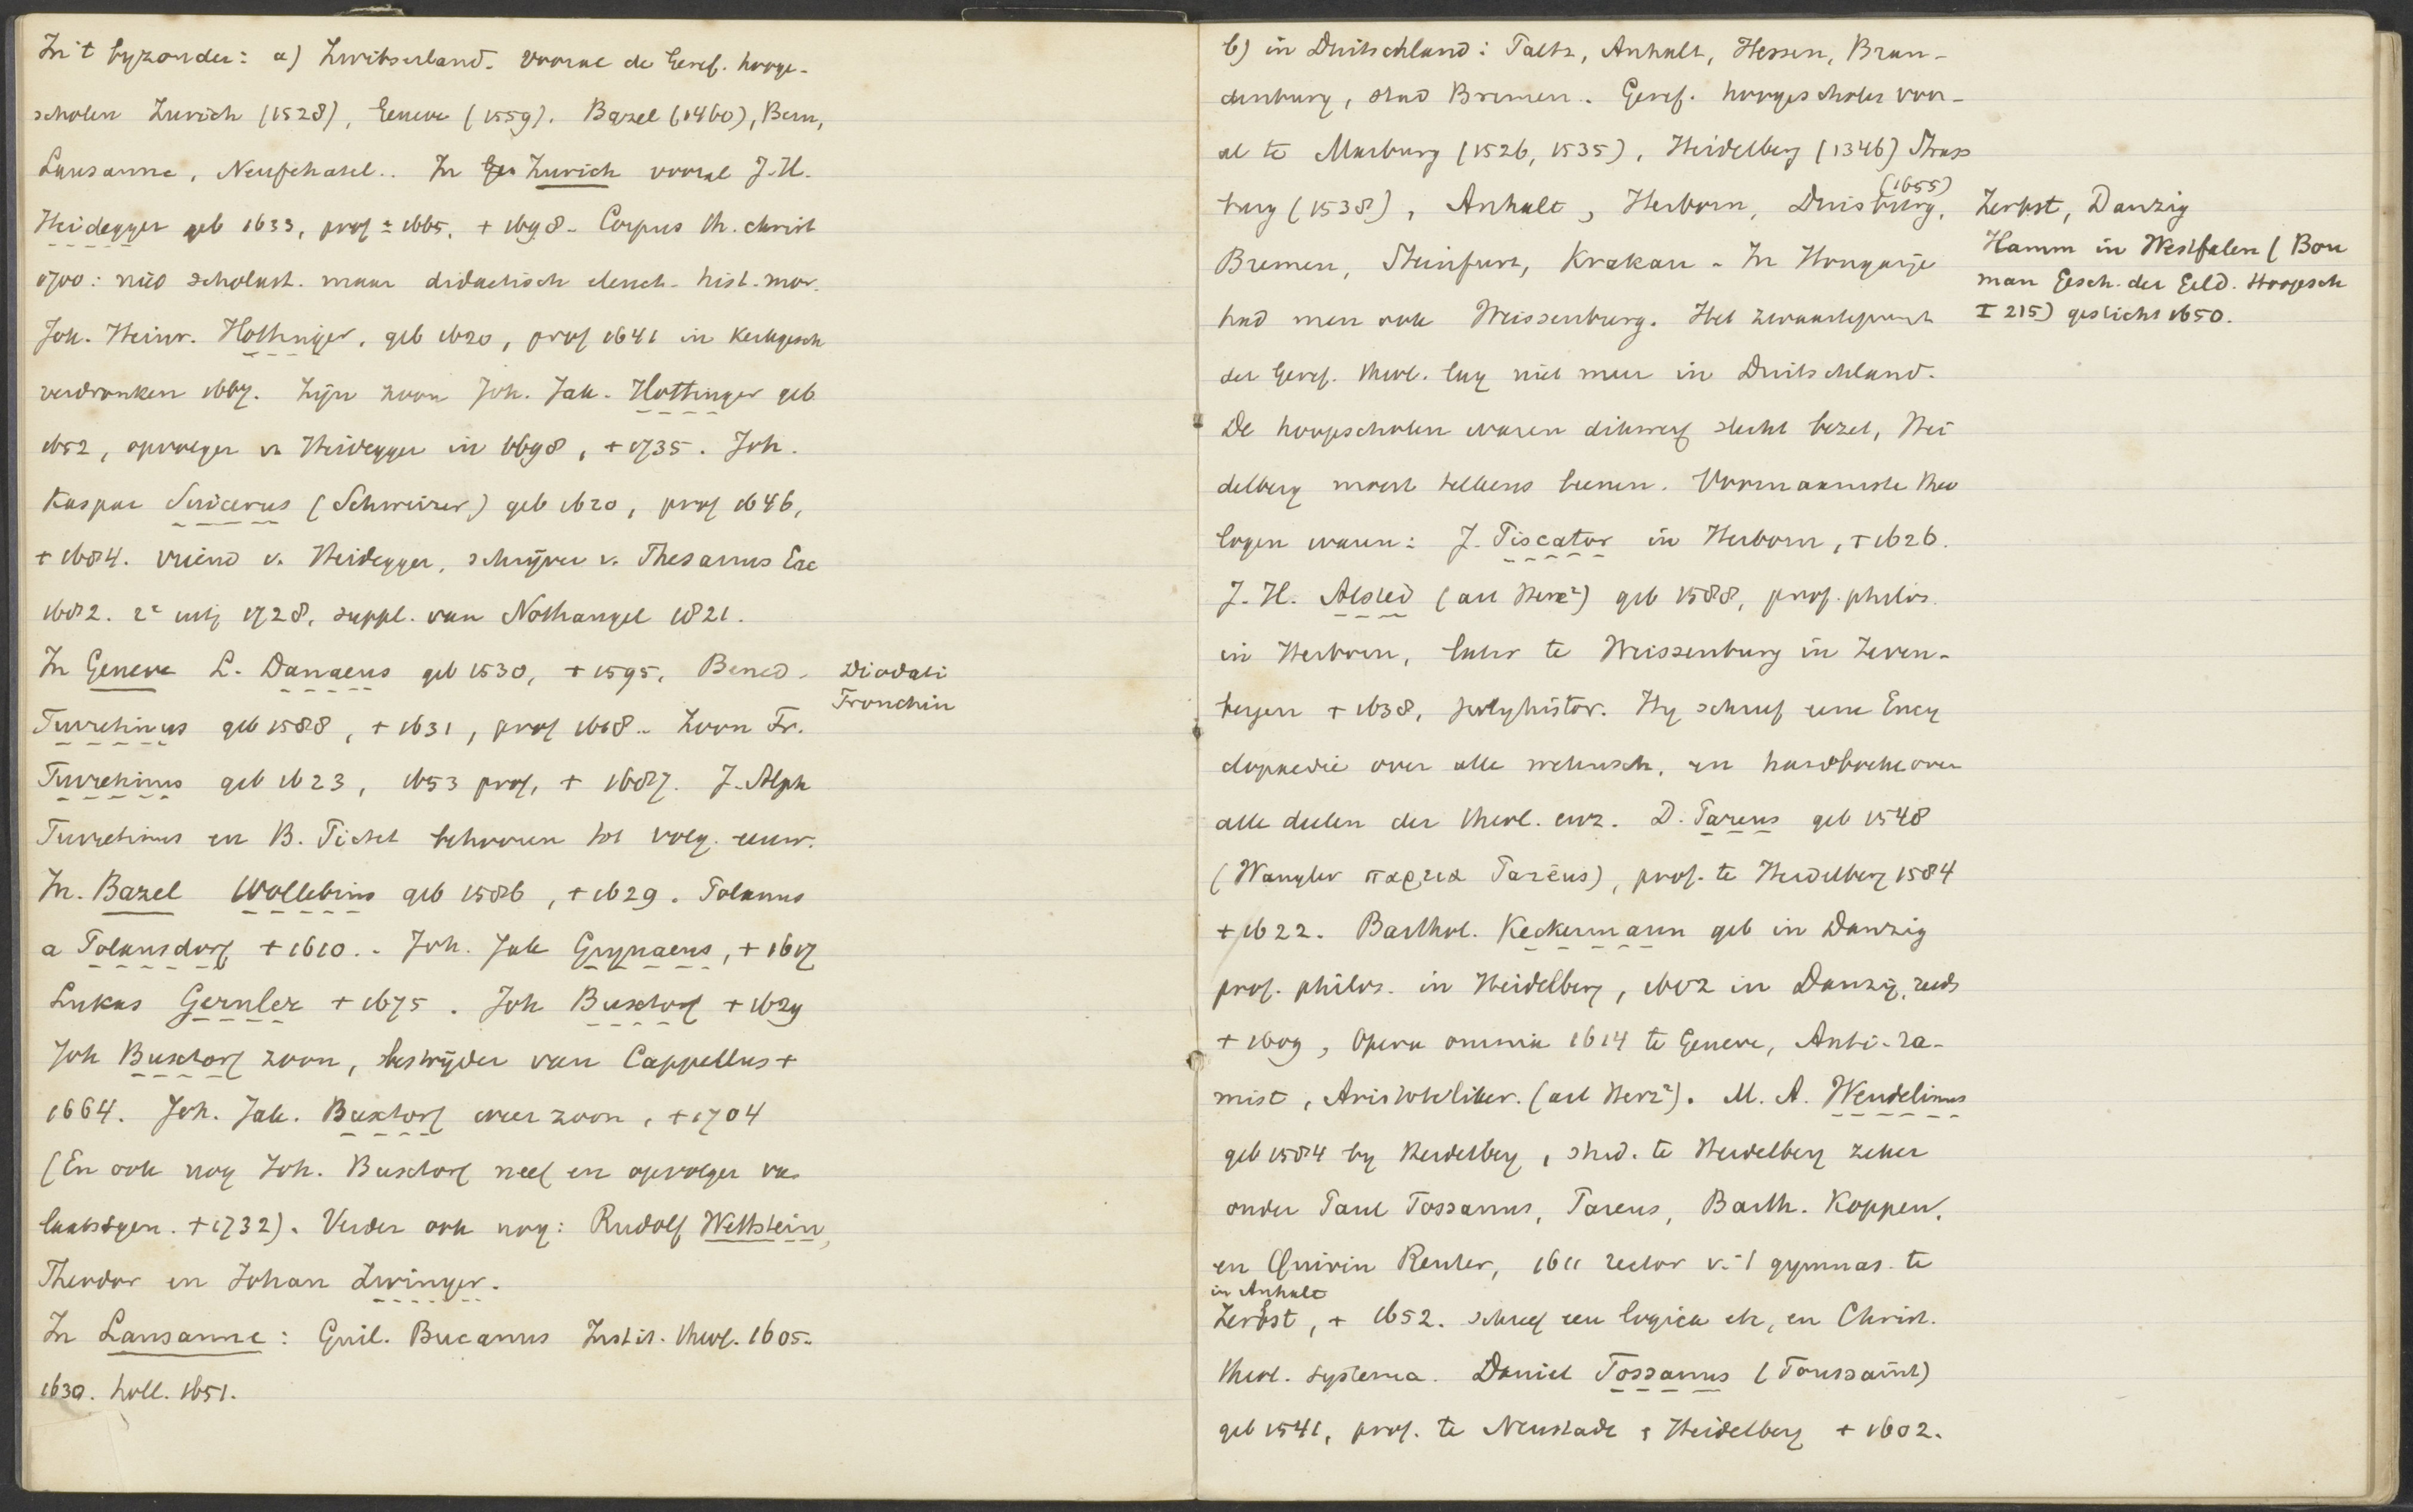 In 't byzonder: a) Zwitserland. Vooral de Geref. hooge-
scholen Zurich (1528), Geneve (1559). Bazel (1460), Bern,
Lausanne, Neufchatel.. In Zurich vooral J.H.
Heidegger geb 1633, prof ± 1665, + 1698. Corpus th. christ
1700: niet scholast. maar didactisch elench. hist. mor.
Joh. Heinr. Hottinger, geb 1620, prof 1641 in kerkgesch
verdronken 1667. Zijn zoon Joh. Jak. Hottinger geb
1652, opvolger v. Heidegger in 1698, + 1735. Joh.
Kaspar Suicerus (Schweizer) geb 1620, prof 1646,
+ 1684. vriend v. Heidegger, schrijver v. Thesaurus Ecc
1682. 2e uitg 1728, suppl. van Nothangel 1821.
In Geneve L. Danaeus geb 1530, + 1595, Bened. Diodati
Tronchin
Turretinus geb 1588, + 1631, prof 1618.. Zoon Fr.
Turretinus geb 1623, 1653 prof, + 1687. J. Alph
Turretinus en B. Pictet behooren tot volg. eeuw.
In. Bazel Wollebius geb 1586, + 1629. Polanus
a Polansdorf + 1610.. Joh. Jak Grynaeus, + 1617
Lukas Gernler + 1675. Joh Buxtorf + 1629
Joh Buxtorf zoon, bestrijder van Cappellus +
1664. Joh. Jak. Buxtorf weer zoon, + 1704
(En ook nog Joh. Buxtorf neef en opvolger va
laatstgen. + 1732). Verder ook nog: Rudolf Wettstein,
Theodor en Johan Zwinger.
In Lausanne: Guil. Bucanus Instit. theol. 1605.
1630. holl. 1651.
b) in Duitschland: Paltz, Anhalt, Hessen, Bran-
denburg, stad Bremen. Geref. hoogescholen voor-
al te Marburg (1526, 1535), Heidelberg (1346) Strass
burg (1538), Anhalt, Herborn, Duisburg, (1655) Zerbst, Danzig
Hamm in Westfalen (Bou
man Gesch. der Geld. Hoogesch
I 215) gesticht 1650.
Bremen, Steinfurt, Krakau. In Hongarije
had men ook Weissenburg. Het zwaartepunt
der Geref. theol. lag niet meer in Duitschland.
De hoogescholen waren dikwerf slecht bezet, Hei
delberg moest telkens leenen. Voornaamste theo
logen waren: J. Piscator in Herborn, + 1626.
J.H. Alsted (art Herz²) geb 1588, prof. philos.
in Herborn, later te Weissenburg in Zeven-
bergen + 1638, polyhistor. Hij schreef eene Ency
clopaedie over alle wetensch. en handboeken over
alle deelen der theol. enz. D. Pareus geb 1548
(Wangler παρεια Parēus), prof. te Heidelberg 1584
+ 1622. Barthol. Keckermann geb in Danzig
prof. philos. in Heidelberg, 1602 in Danzig, reeds
+ 1609, Opera omnia 1614 te Geneve, Anti-ra-
mist, Aristoteliker. (art Herz²). M.A. Wendelinus
geb 1584 by Heidelberg, stud. te Heidelberg zeker
onder Paul Tossanus, Pareus, Barth. Koppen,
en Quirin Reuter, 1611 rector v. 't gymnas. te
in Anhalt
Zerbst, + 1652. schreef een logica etc, en Christ.
theol. systema. Daniel Tossanus (Toussaint)
geb 1541, prof. te Neustadt, Heidelberg + 1602.